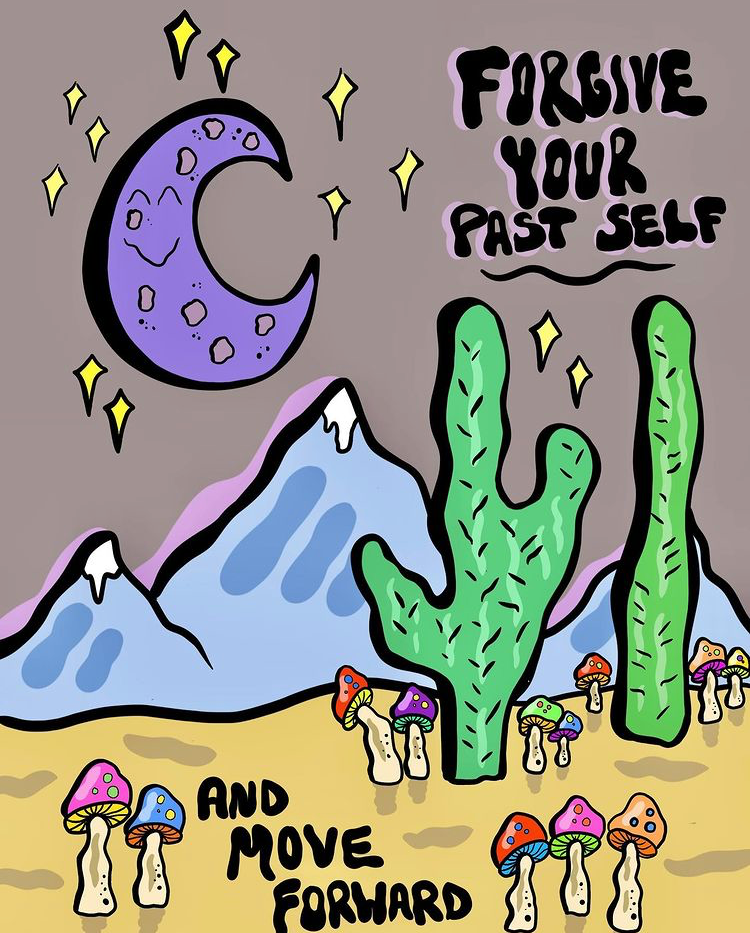 FORGIVE
YOUR
PAST SELF
AND
MOVE
FORWARD